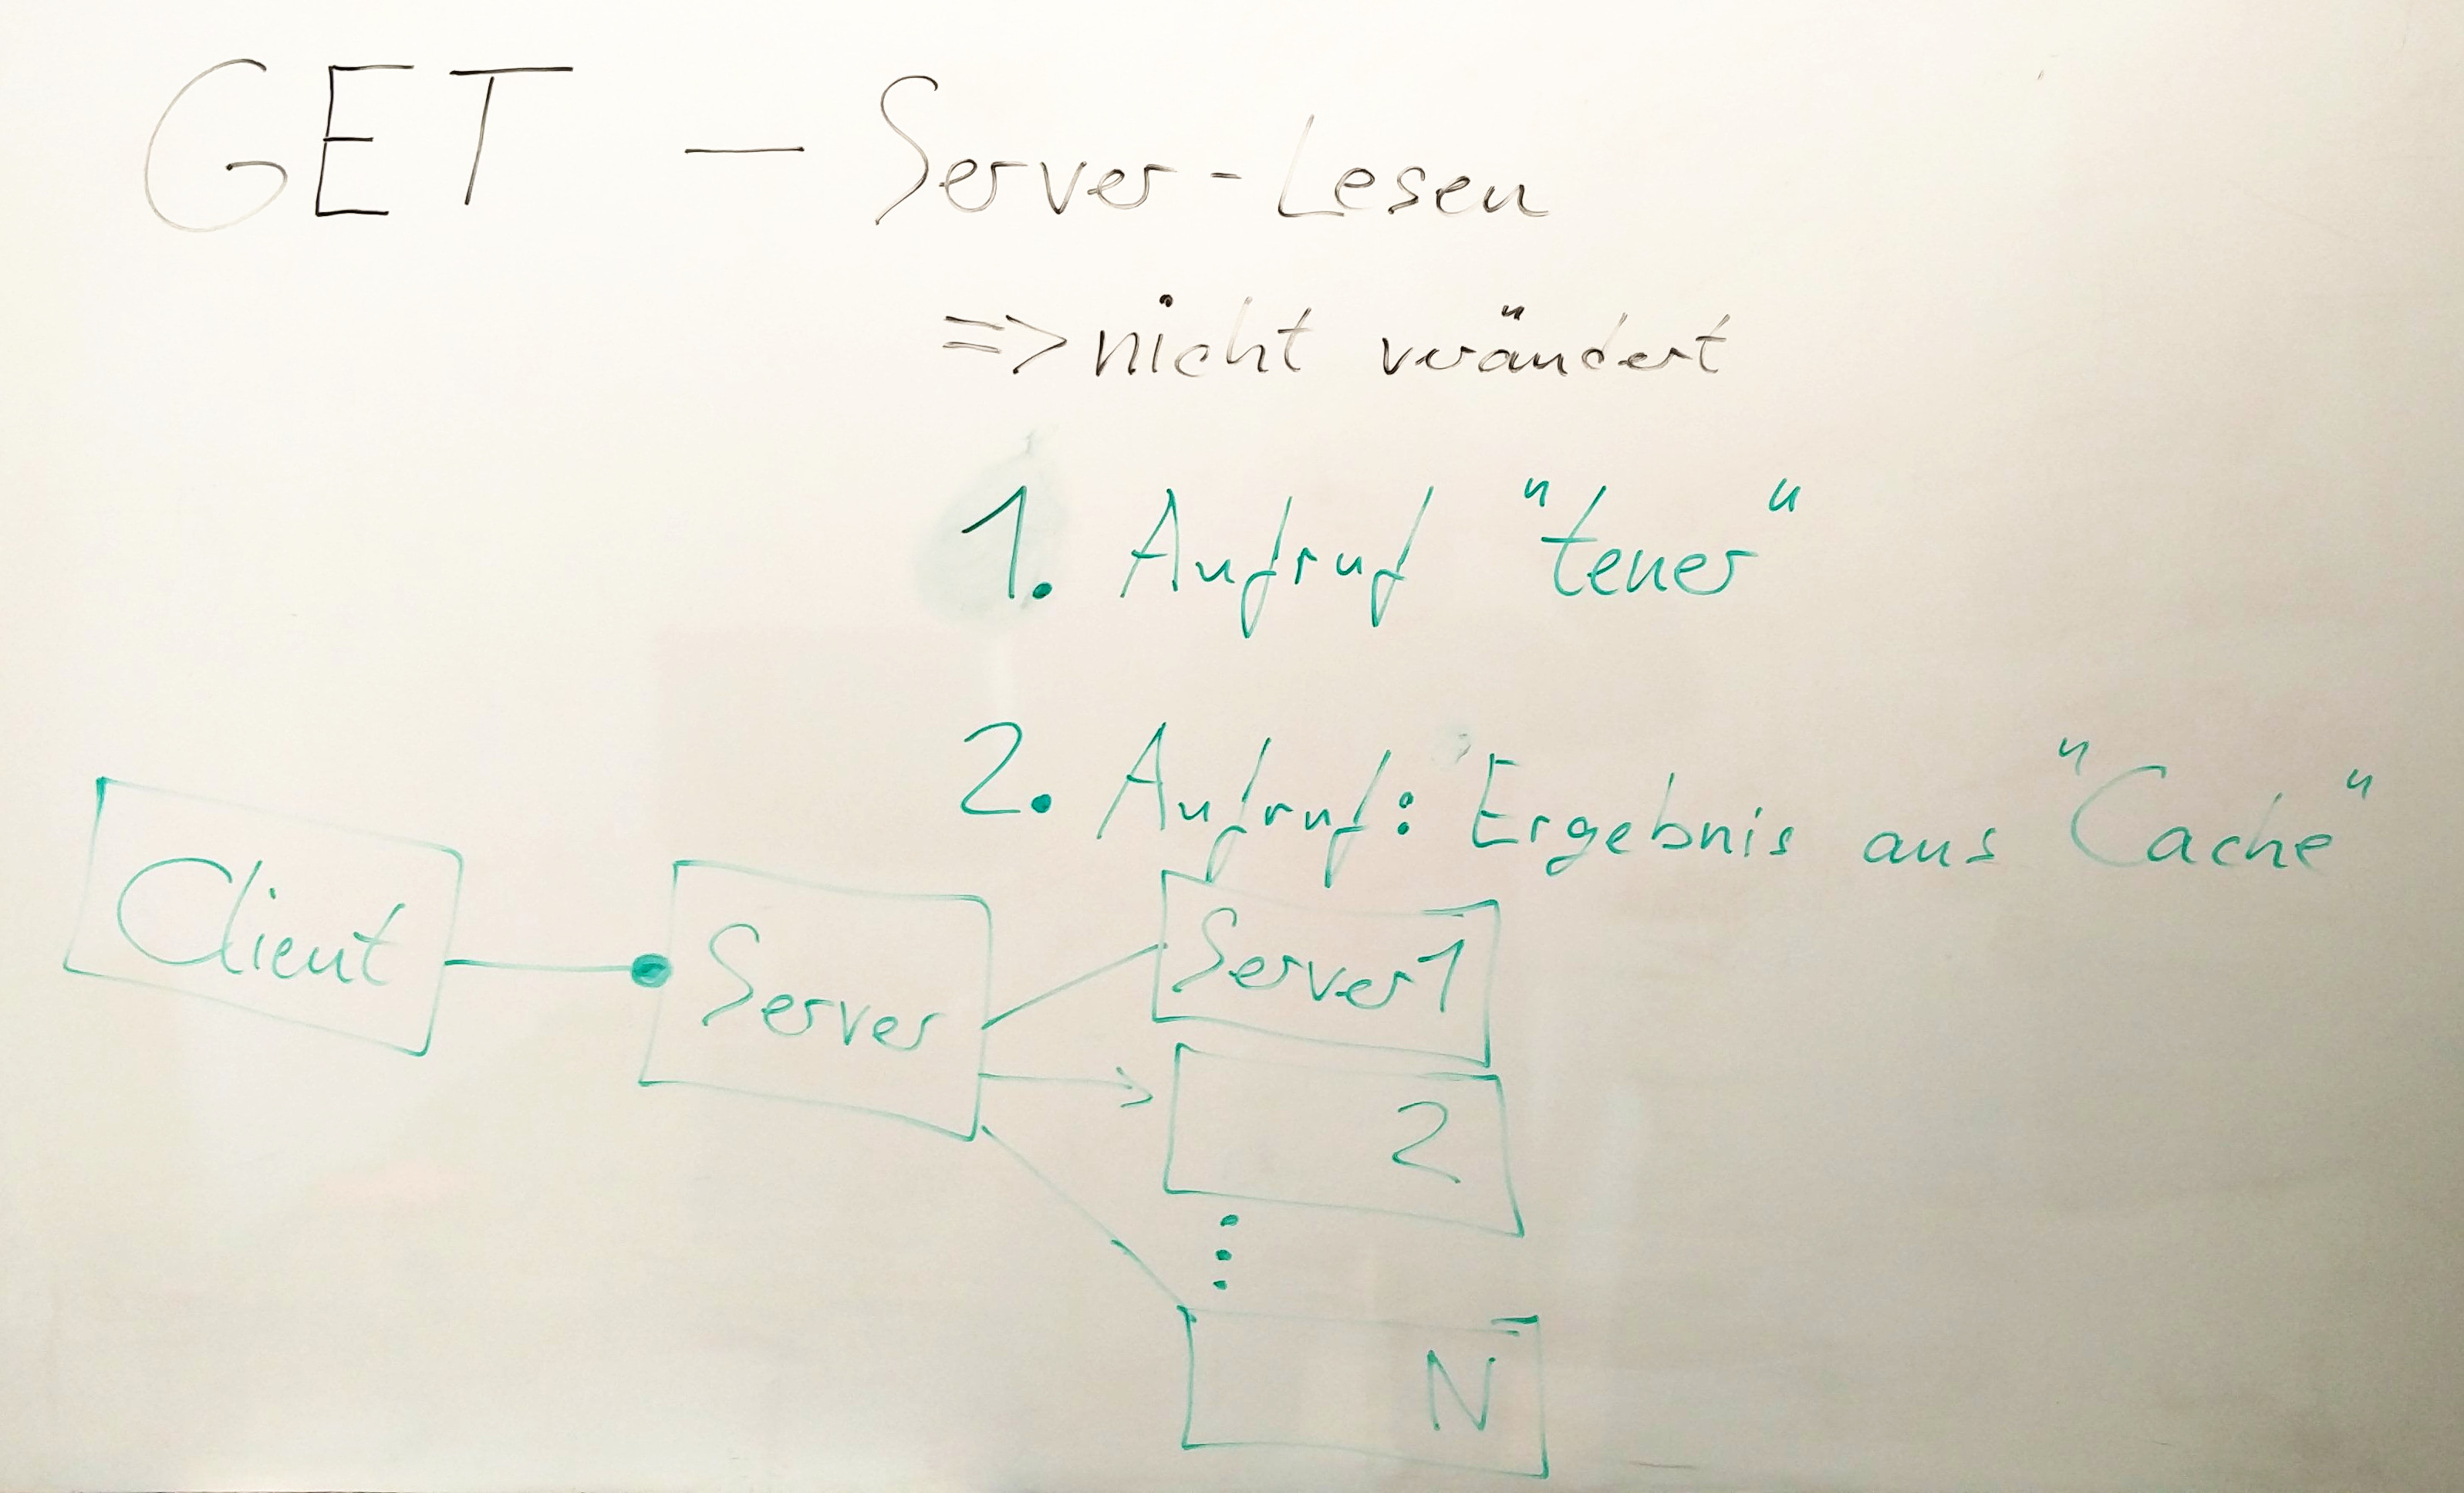 GET — Server-Lesen
=> nicht verändert
1. Aufruf "teuer"
2. Aufruf: Ergebnis aus "Cache"
Client
Server
Server 1
2
N